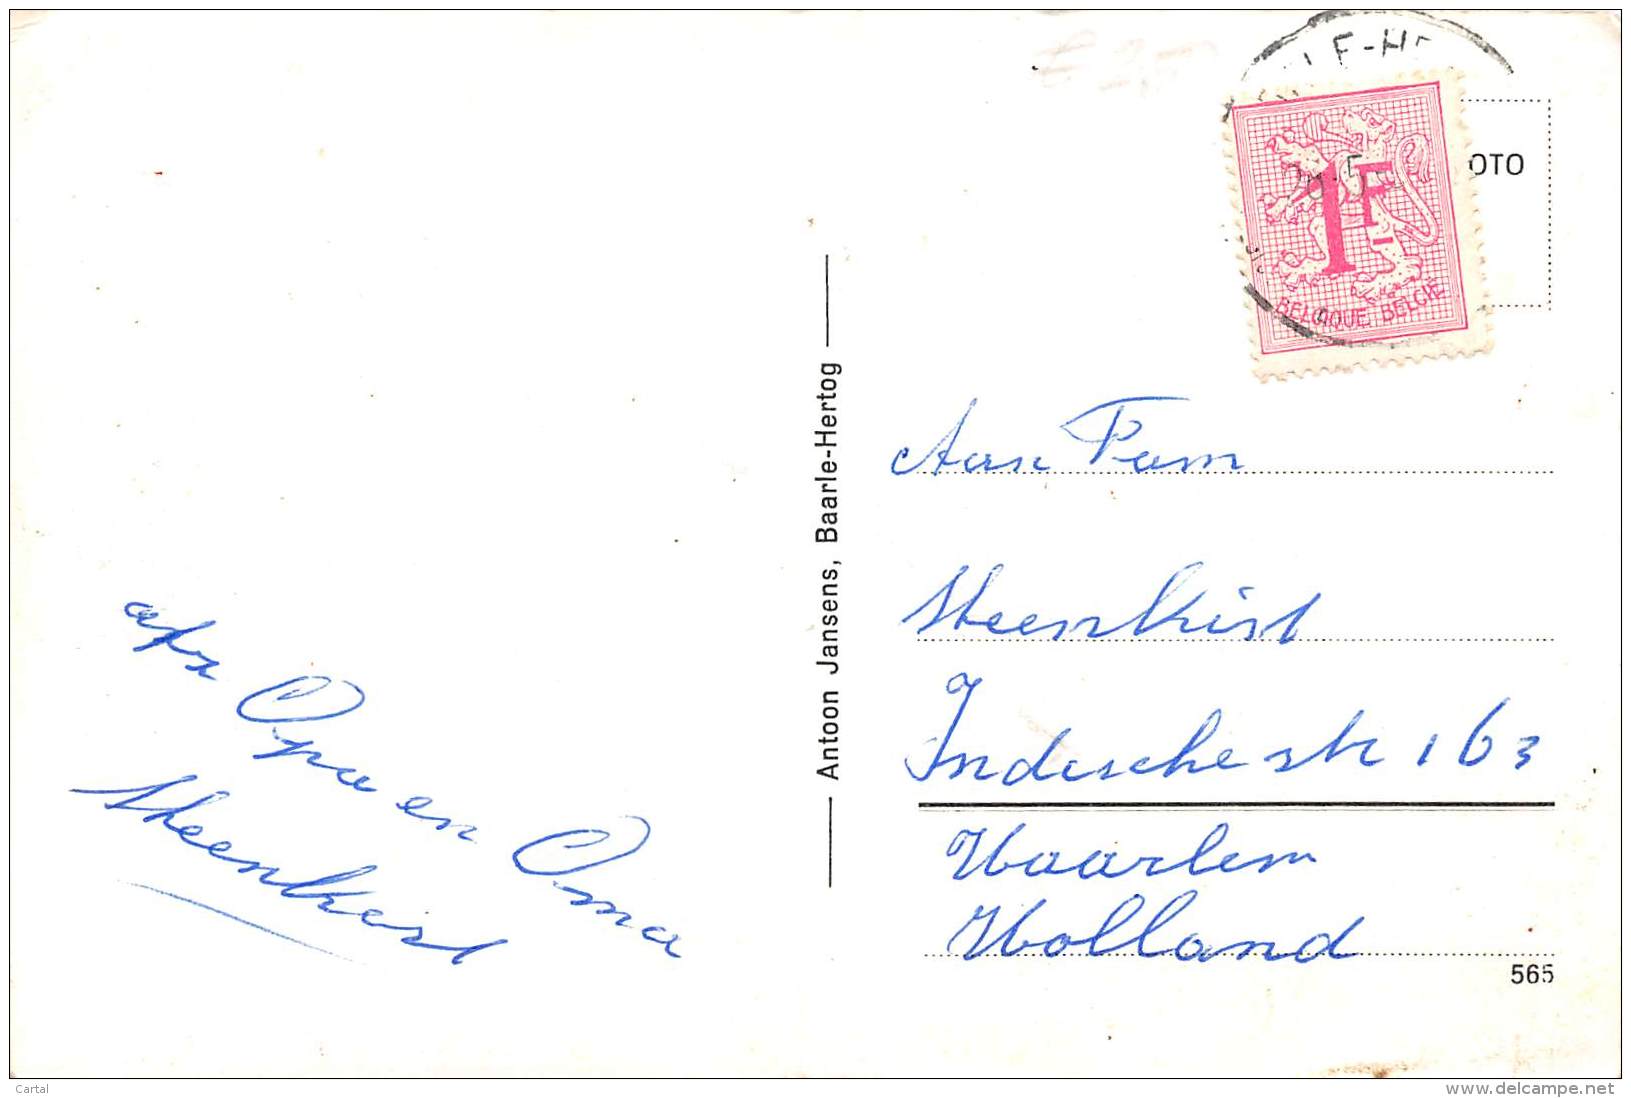 afz
Opa en Oma
Steenkist
Antoon Jansens, Baarle-Hertog
LE-H
OTO
1F
BELGIQUE BELGIË
Aan Pam
Steenkist
Indischestr 163
Haarlem
Holland
565
Cartal
delcampe.net